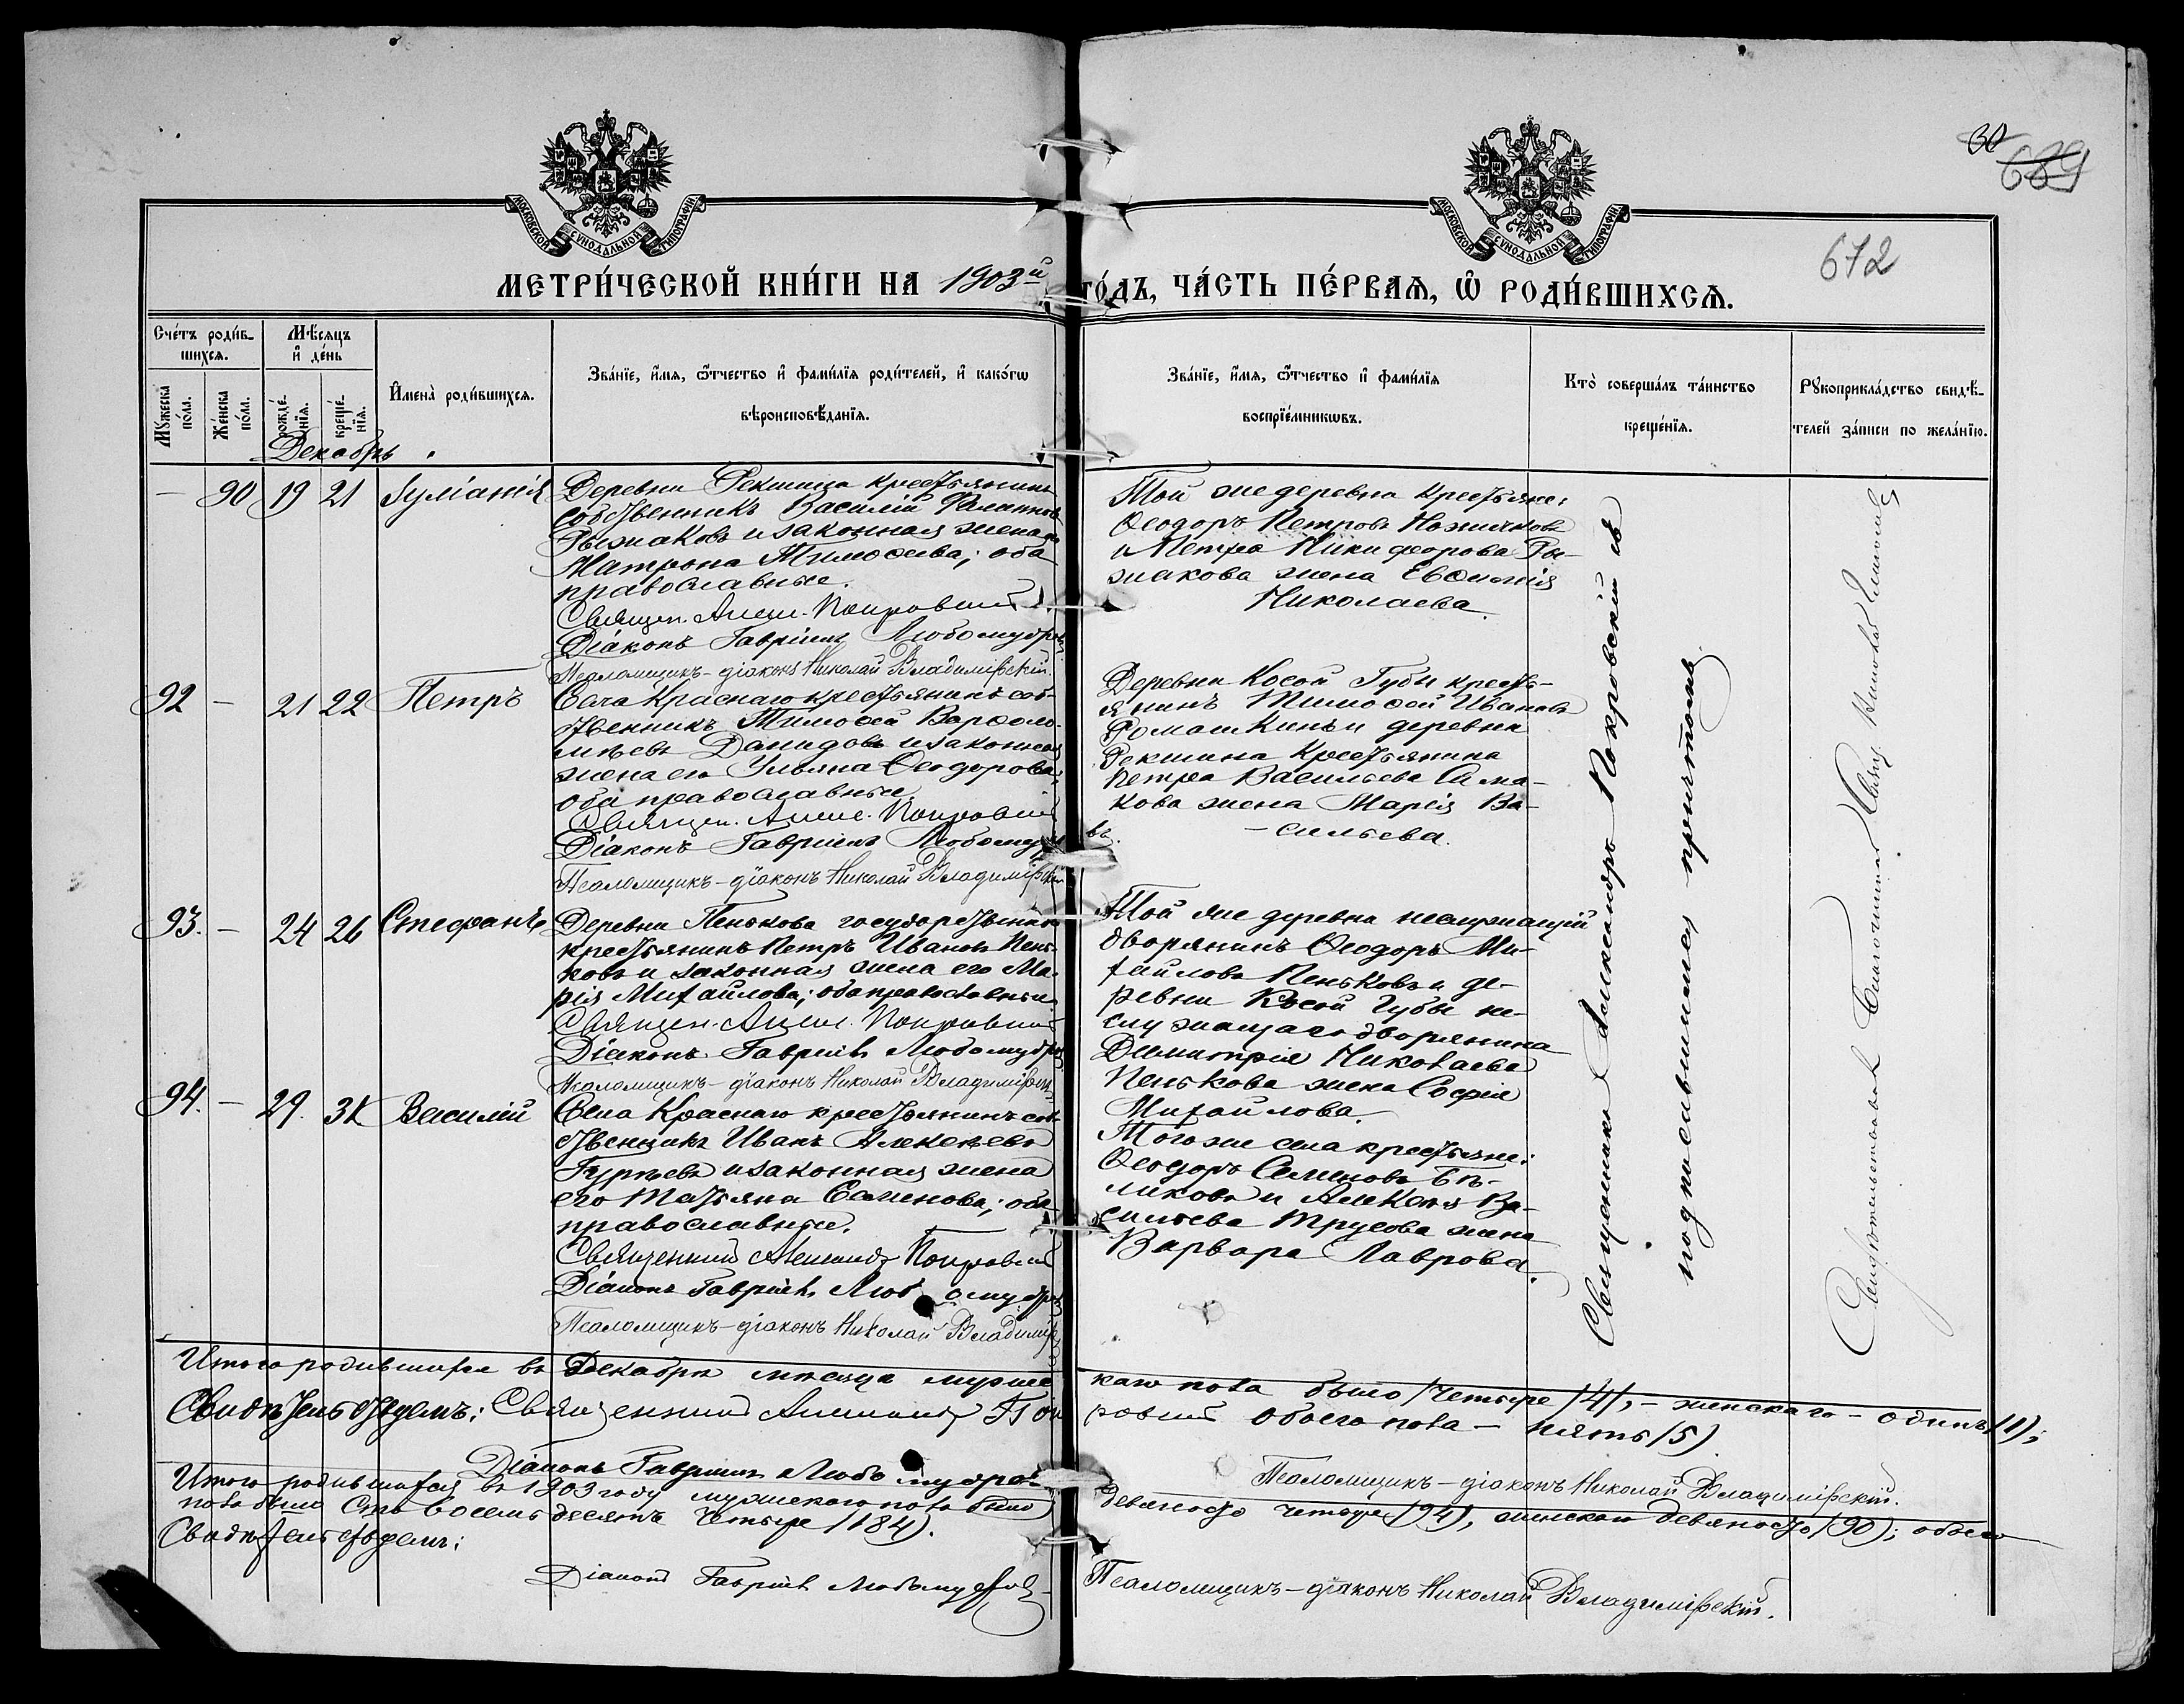 60
689
672
МОСКОВСКОЙ СѴНОДАЛЬНОЙ ТИПОГРАФІИ
МОСКОВСКОЙ СѴНОДАЛЬНОЙ ТИПОГРАФІИ
МЕТРИ́ЧЕСКОЙ КНИ́ГИ НА 1903й ГО́ДЪ, ЧА́СТЬ ПЕ́РВАѦ, Ѡ҆ РОДИ́ВШИХСѦ.
Сче́тъ роди́в-
шихсѧ.
Мꙋ́жеска по́ла.
Же́нска по́ла.
Мѣ́сѧцъ
и҆ де́нь
рожде́-
нїѧ.
креще́-
нїѧ.
И҆мена̀ роди́вшихсѧ.
Зва́нїе, и҆́мѧ, ѻ҆́тчество и҆ фами́лїѧ роди́телей, и҆ како́гѡ
вѣроисповѣ́данїѧ.
Зва́нїе, и҆́мѧ, ѻ҆́тчество и҆ фами́лїѧ
воспрїе́мникѡвъ.
Кто̀ соверша́лъ та́инство
креще́нїѧ.
Рꙋкоприкла́дство свидѣ́-
телей за́писи по жела́нїю.
Декабрь
— 90 19 21 Іуліанія
Деревни Рекшина крестьянинъ
собственникъ Василій Филиппов
Рыжаковъ и законная жена его
Матрона Тимоѳеева; оба
православные.
Священ. Алекс. Покровскій
Діаконъ Гавріилъ Любомудровъ
Псаломщикъ-діаконъ Николай Владимірскій.
Той же деревни крестьяне:
Ѳеодоръ Петровъ Ножичковъ
и Петра Никифорова Ры-
жакова жена Евѳимія
Николаева.
92 — 21 22 Петръ
Села Краснаго крестьянинъ соб-
ственникъ Тимоѳей Варѳоло-
мѣевъ Данидовъ и законная
жена его Ульяна Ѳеодорова;
оба православные.
Священ. Алекс. Покровскій
Діаконъ Гавріилъ Любомудровъ.
Псаломщикъ-діаконъ Николай Владимірскій
Деревни Косой Губы кресть-
янинъ Тимоѳей Ивановъ
Ромашкинъ и деревни
Рекшина крестьянина
Петра Васильева Сима-
кова жена Марія Ва-
-сильева.
93. — 24 26 Стефанъ
Деревни Пенькова государственный
крестьянинъ Петръ Ивановъ Пень-
ковъ и законная жена его Ма-
рія Михайлова; оба православные.
Священ. Алекс. Покровскій
Діаконъ Гавріилъ Любомудровъ
Псаломщикъ-діаконъ Николай Владимірскій
Той же деревни неслужащій
дворянинъ Ѳеодоръ Ми-
хайловъ Пеньковъ и де-
ревни Косой Губы не-
служащаго дворянина
Димитрія Николаева
Пенькова жена Софія
Михайлова.
94. — 29. 31 Василій
Села Краснаго крестьянинъ соб-
ственникъ Иванъ Алексѣевъ
Гурьевъ и законная жена
его Татьяна Семенова; оба
православные.
Священникъ Александръ Покровскій
Діаконъ Гавріилъ Любомудровъ
Псаломщикъ-діаконъ Николай Владимірск
Того же села крестьяне:
Ѳеодоръ Семеновъ Бѣ-
ликовъ и Алексѣя Ва-
сильева Трусова жена
Варвара Лаврова.
Священникъ Александръ Покровскій съ
подписавшимся причтомъ.
Итого родившихся въ Декабрѣ мѣсяцѣ мужескаго пола было четыре /4/, — женскаго — одинъ (1);
обоего пола — пять (5).
Свидѣтельствуемъ: Священникъ Александръ Покровскій
Діаконъ Гавріилъ Любомудровъ
Псаломщикъ-діаконъ Николай Владимірскій.
Итого родившихся въ 1903 году мужескаго пола было девяносто четыре (94), женскаго девяносто (90); обоего
пола было сто восемьдесятъ четыре (184).
Свидѣтельствуемъ:
Діаконъ Гавріилъ Любомудровъ
Псаломщикъ-діаконъ Николай Владимірскій.